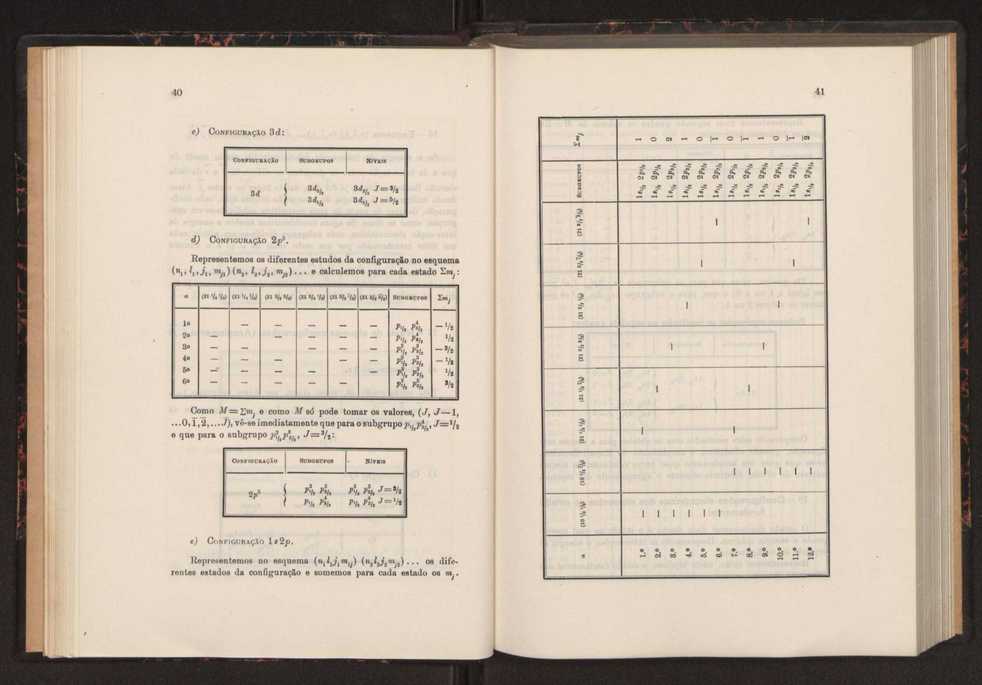 40
c) Configuração 3d:
Configuração Subgrupos Níveis
3d { 3d₃/₂ 3d₃/₂ J=³/₂
3d₅/₂ 3d₅/₂ J=⁵/₂
d) Configuração 2p⁵.
Representemos os diferentes estudos da configuração no esquema
(n₁, l₁, j₁, mⱼ₁) (n₂, l₂, j₂, mⱼ₂) ... e calculemos para cada estado Σmⱼ:
Subgrupos Σmⱼ
1º — — — — — p₁/₂ p⁴₃/₂ — ¹/₂
2º — — — — — p₁/₂ p⁴₃/₂ ¹/₂
3º — — — — — p²₁/₂ p³₃/₂ — ³/₂
4º — — — — — p²₁/₂ p³₃/₂ — ¹/₂
5º — — — — — p²₁/₂ p³₃/₂ ¹/₂
6º — — — — — p²₁/₂ p³₃/₂ ³/₂
Como M=Σmⱼ e como M só pode tomar os valores, (J, J—1,
...0,1̅,2̅,...J̅), vê-se imediatamente que para o subgrupo p₁/₂p⁴₃/₂, J=¹/₂
e que para o subgrupo p²₁/₂p³₃/₂, J=³/₂:
Configuração Subgrupos Níveis
2p⁵ { p²₁/₂ p³₃/₂ p²₁/₂ p³₃/₂ J=³/₂
p₁/₂ p⁴₃/₂ p₁/₂ p⁴₃/₂ J=¹/₂
e) Configuração 1s2p.
Representemos no esquema (n₁l₁j₁mⱼ₁) (n₂l₂j₂mⱼ₂) ... os dife-
rentes estados da configuração e somemos para cada estado os mⱼ.
41
Subgrupos Σmⱼ
1.º — — 1s₁/₂ 2p₃/₂ 1
2.º — — 1s₁/₂ 2p₃/₂ 0
3.º — — 1s₁/₂ 2p₃/₂ 2
4.º — — 1s₁/₂ 2p₃/₂ 1
5.º — — 1s₁/₂ 2p₃/₂ 0
6.º — — 1s₁/₂ 2p₃/₂ 1̅
7.º — — 1s₁/₂ 2p₃/₂ 0
8.º — — 1s₁/₂ 2p₃/₂ 1̅
9.º — — 1s₁/₂ 2p₃/₂ 1
10.º — — 1s₁/₂ 2p₃/₂ 0
11.º — — 1s₁/₂ 2p₃/₂ 1̅
12.º — — 1s₁/₂ 2p₃/₂ 2̅